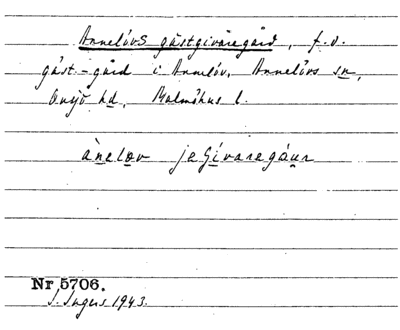 Annelövs gästgivaregård, f.d.
gäst-gård i Annelöv, Annelövs sn,
Onsjö hd, Malmöhus l.
ànelov jeſívaregá͡ur
Nr 5706.
S. Ingers 1943.